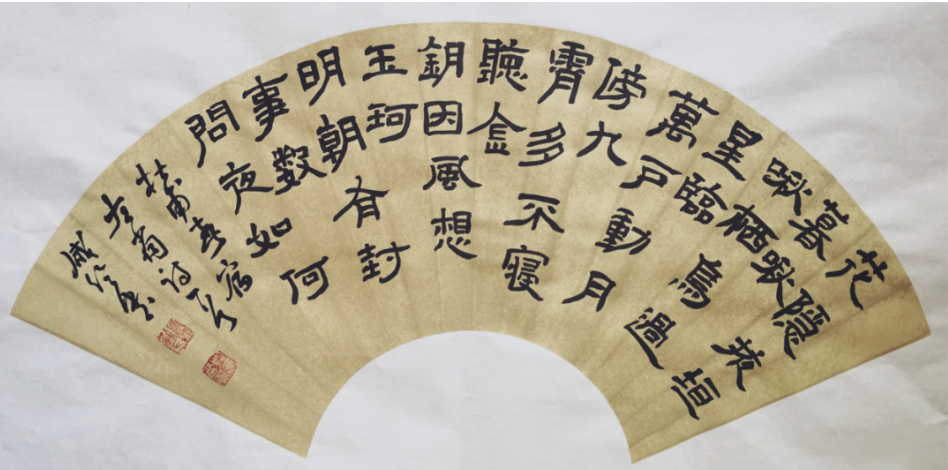 花隱掖垣
暮啾
啾栖鳥過
星臨
萬戶動月
傍九
霄多不寢
聽金
鈅因風想
玉珂
明朝有封
事數
問夜如何
杜甫春宿
左省詩